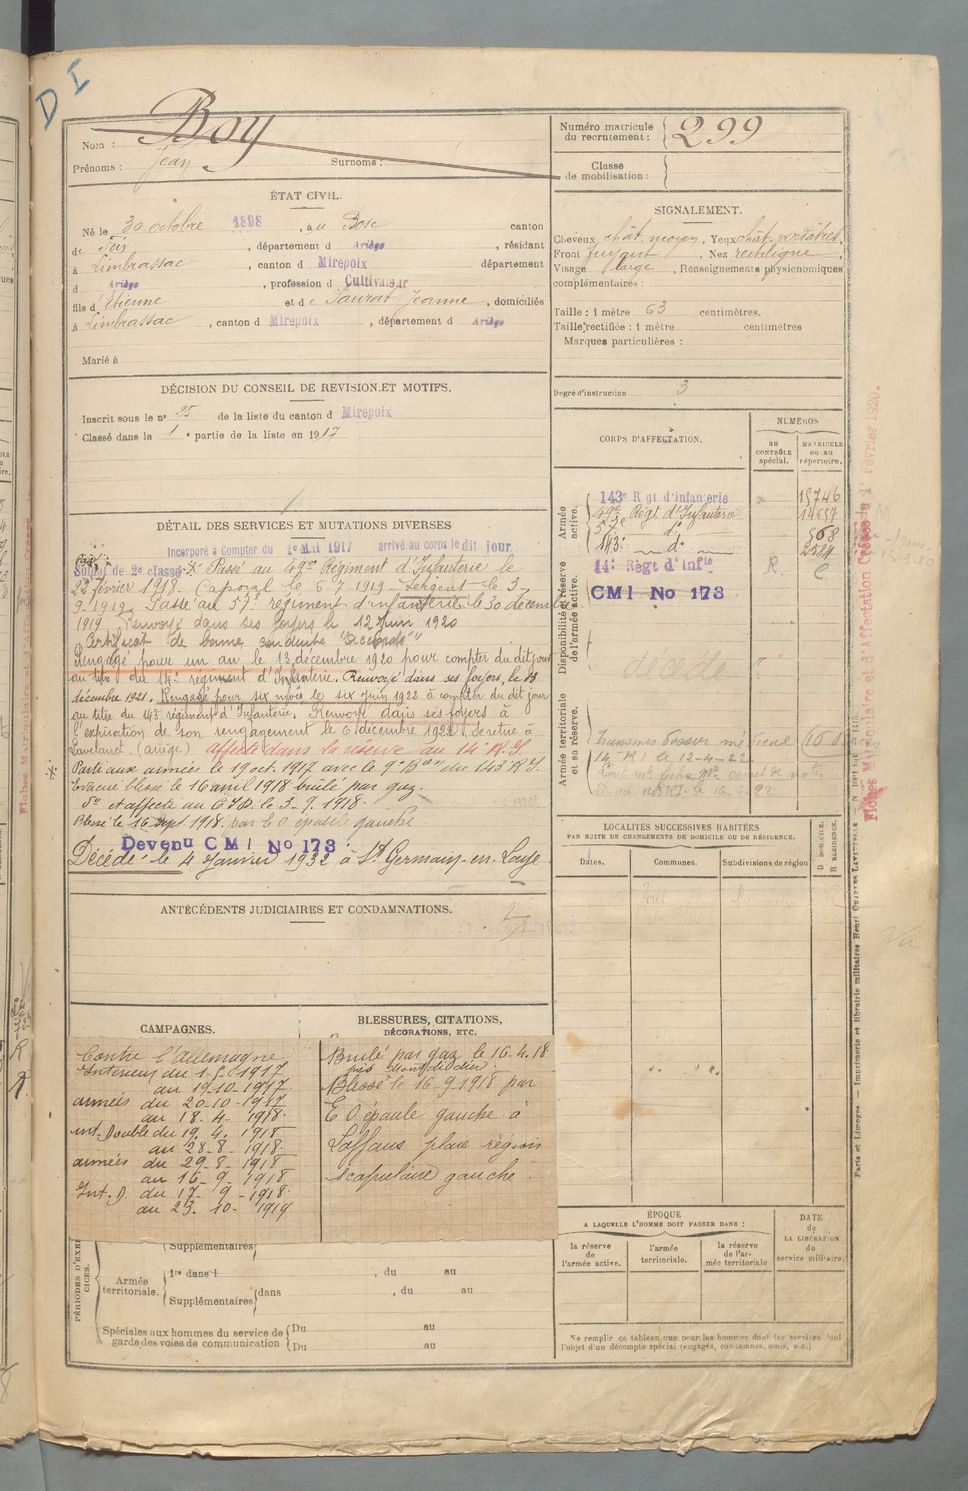 D I
Nom : Boy
Prénoms : Jean Surnoms :
Numéro matricule du recrutement : 299
Classe de mobilisation :
ÉTAT CIVIL.
Né le 30 octobre 1898, au Bosc canton
de Foix, département d Ariège, résidant
à Limbrassac, canton d Mirepoix département
d Ariège, profession d Cultivateur
fils d'Etienne et de Saurat Jeanne, domiciliés
à Limbrassac, canton d Mirepoix, département d Ariège
Marié à
SIGNALEMENT.
Cheveux chât. moyen, Yeux chât. verdâtres,
Front fuyant, Nez rectiligne,
Visage large, Renseignements physionomiques
complémentaires :
Taille : 1 mètre 63 centimètres.
Taille rectifiée : 1 mètre centimètres
Marques particulières :
Degré d'instruction 3
DÉCISION DU CONSEIL DE REVISION ET MOTIFS.
Inscrit sous le n° 25 de la liste du canton d Mirepoix
Classé dans la 1e partie de la liste en 1917
DÉTAIL DES SERVICES ET MUTATIONS DIVERSES
Incorporé à Compter du 1e Mai 1917 arrivé au corps le dit jour
Soldat de 2e classe Passé au 49me Régiment d'Infanterie le
22 février 1918. Caporal le 6 7 1919. Sergent le 3-
9-1919. Passé au 57e régiment d'infanterie le 30 décembre
1919. Renvoyé dans ses foyers le 12 Juin 1920
Certificat de bonne conduite "Accordé"
Rengagé pour un an le 13 décembre 1920 pour compter du dit jour
au titre du 14e régiment d'Infanterie. Renvoyé dans ses foyers, le 13
décembre 1921. Rengagé pour six mois le six juin 1922 à compter du dit jour
au titre du 143e régiment d'Infanterie. Renvoyé dans ses foyers à
l'expiration de son rengagement le 6 décembre 1922. Se retire à
Lavelanet (Ariège) affecté dans la réserve au 14e R.I.
Parti aux armées le 19 oct. 1917 avec le 9e Bon du 143e R.I.
Evacué blessé le 16 avril 1918 brûlé par gaz.
et affecté au le 3.9.1918.
Blessé le 16 sept. 1918 par E O épaule gauche
Devenu CMI No 173
Décédé le 4 Janvier 1932 à St Germain-en-Laye
CORPS D'AFFECTATION.
NUMÉROS
au contrôle spécial.
MATRICULE ou au répertoire.
Armée active.
143e Rgt d'Infanterie 15746
49e Régt d'Infanterie 14657
57e do 568
143e do 2524
Disponibilité et réserve de l'armée active.
14e Régt d'Infie R C
CMI No 173
décédé
Armée territoriale et sa réserve.
Transmis dossier médical
14e RI le 12-4-22
LOCALITÉS SUCCESSIVES HABITÉES
PAR SUITE DE CHANGEMENTS DE DOMICILE OU DE RÉSIDENCE.
Dates. Communes. Subdivisions de région
D DOMICILE.
R RÉSIDENCE.
ANTÉCÉDENTS JUDICIAIRES ET CONDAMNATIONS.
CAMPAGNES.
Contre l'Allemagne
Intérieur du 1-5-1917
au 19-10-1917
armées du 20-10-1917
au 18-4-1918
int. Double du 19.4.1918
au 28-8-1918
armées du 29-8-1918
au 16-9-1918
Int. D. du 17-9-1918
au 23.10-1919
BLESSURES, CITATIONS,
DÉCORATIONS, ETC.
Brulé par gaz le 16.4.18
près Montdidier
Blessé le 16-9-1918 par
E O épaule gauche à
Laffaux plaie région
scapulaire gauche
PÉRIODES D'EXERCICES.
Supplémentaires
Armée territoriale.
1re dans l , du au
Supplémentaires dans , du au
Spéciales aux hommes du service de garde des voies de communication
Du au
Du au
ÉPOQUE
A LAQUELLE L'HOMME DOIT PASSER DANS :
la réserve de l'armée active.
l'armée territoriale.
la réserve de l'armée territoriale
DATE DE LA LIBÉRATION du service militaire.
Ne remplir ce tableau que pour les hommes dont les services font
l'objet d'un décompte spécial (engagés, condamnés, omis, etc.)
Paris et Limoges. — Imprimerie et librairie militaires Henri CHARLES-LAVAUZELLE.
Fiches Matriculaire et d'Affectation Créées le 1er Février 1920.